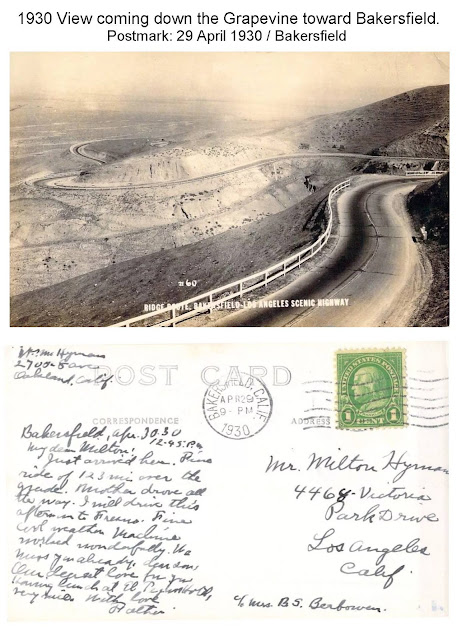 1930 View coming down the Grapevine toward Bakersfield.
Postmark: 29 April 1930 / Bakersfield
#60
RIDGE ROUTE. BAKERSFIELD-LOS ANGELES SCENIC HIGHWAY
Hyman
2700-5 ave
Oakland, Calif.
POST CARD
BAKERSFIELD, CALIF.
APR 29
9-PM
1930
UNITED STATES POSTAGE
1 CENT 1
CORRESPONDENCE
ADDRESS
Bakersfield, Apr. 30 30
12:45 PM
My dear Milton,
Just arrived here. Fine
ride of 123 mi over the
grade. Mother drove all
the way. I will drive this
afternoon to Fresno. Fine
cool weather Machine
worked wonderfully. We
miss you already,
Our love for you
Having lunch at El
very nice With love
Father
Mr. Milton Hyman
4468-Victoria
Park Drive
Los Angeles
Calif.
c/o Mrs. B.S. Berbower.